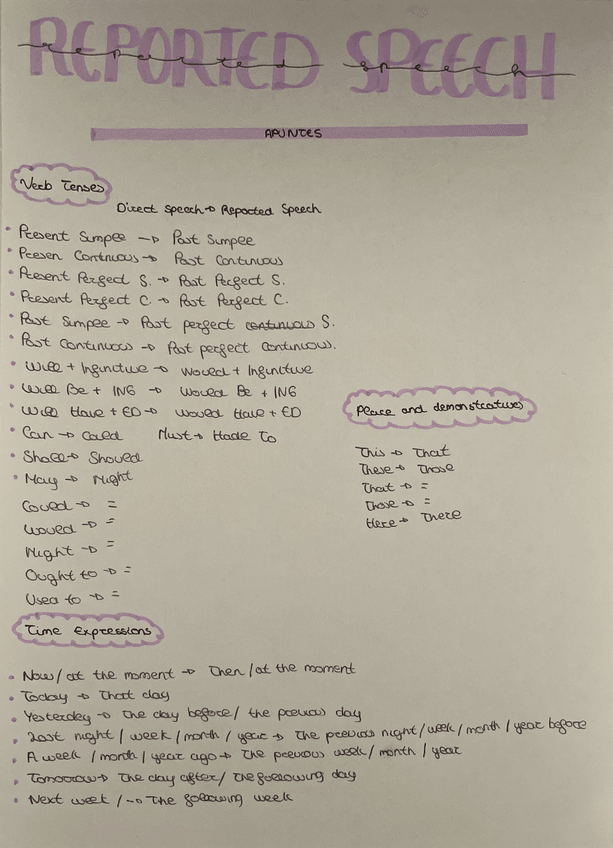 REPORTED SPEECH
reported speech
APUNTES
Verb Tenses
Direct Speech → Reported Speech
• Present Simple → Past Simple
• Presen Continuous → Past Continuous
• Present Perfect S. → Past Perfect S.
• Present Perfect C. → Past Perfect C.
• Past Simple → Past perfect continuous S.
• Past Continuous → Past perfect continuous.
• Will + Infinitive → Would + Infinitive
• Will Be + ING → Would Be + ING
• Will Have + ED → Would Have + ED
• Can → Could Must → Hade To
• Shall → Should
• May → Might
Could → =
Would → =
Might → =
Ought to → =
Used to → =
Place and demonstratives
This → That
These → Those
That → =
Those → =
Here → There
Time Expressions
• Now / at the moment → Then / at the moment
• Today → That day
• Yesterday → The day before / the previous day
• Last night / week / month / year → The previous night / week / month / year before
• A week / month / year ago → The previous week / month / year
• Tomorrow → The day after / The following day
• Next week / → The following week